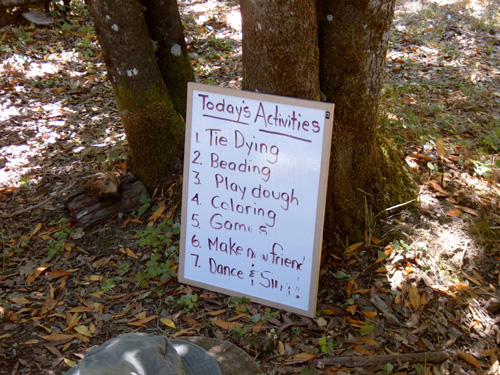 Today's Activities
1. Tie Dying
2. Beading
3. Play dough
4. Coloring
5. Games
6. Make new friend
7. Dance &